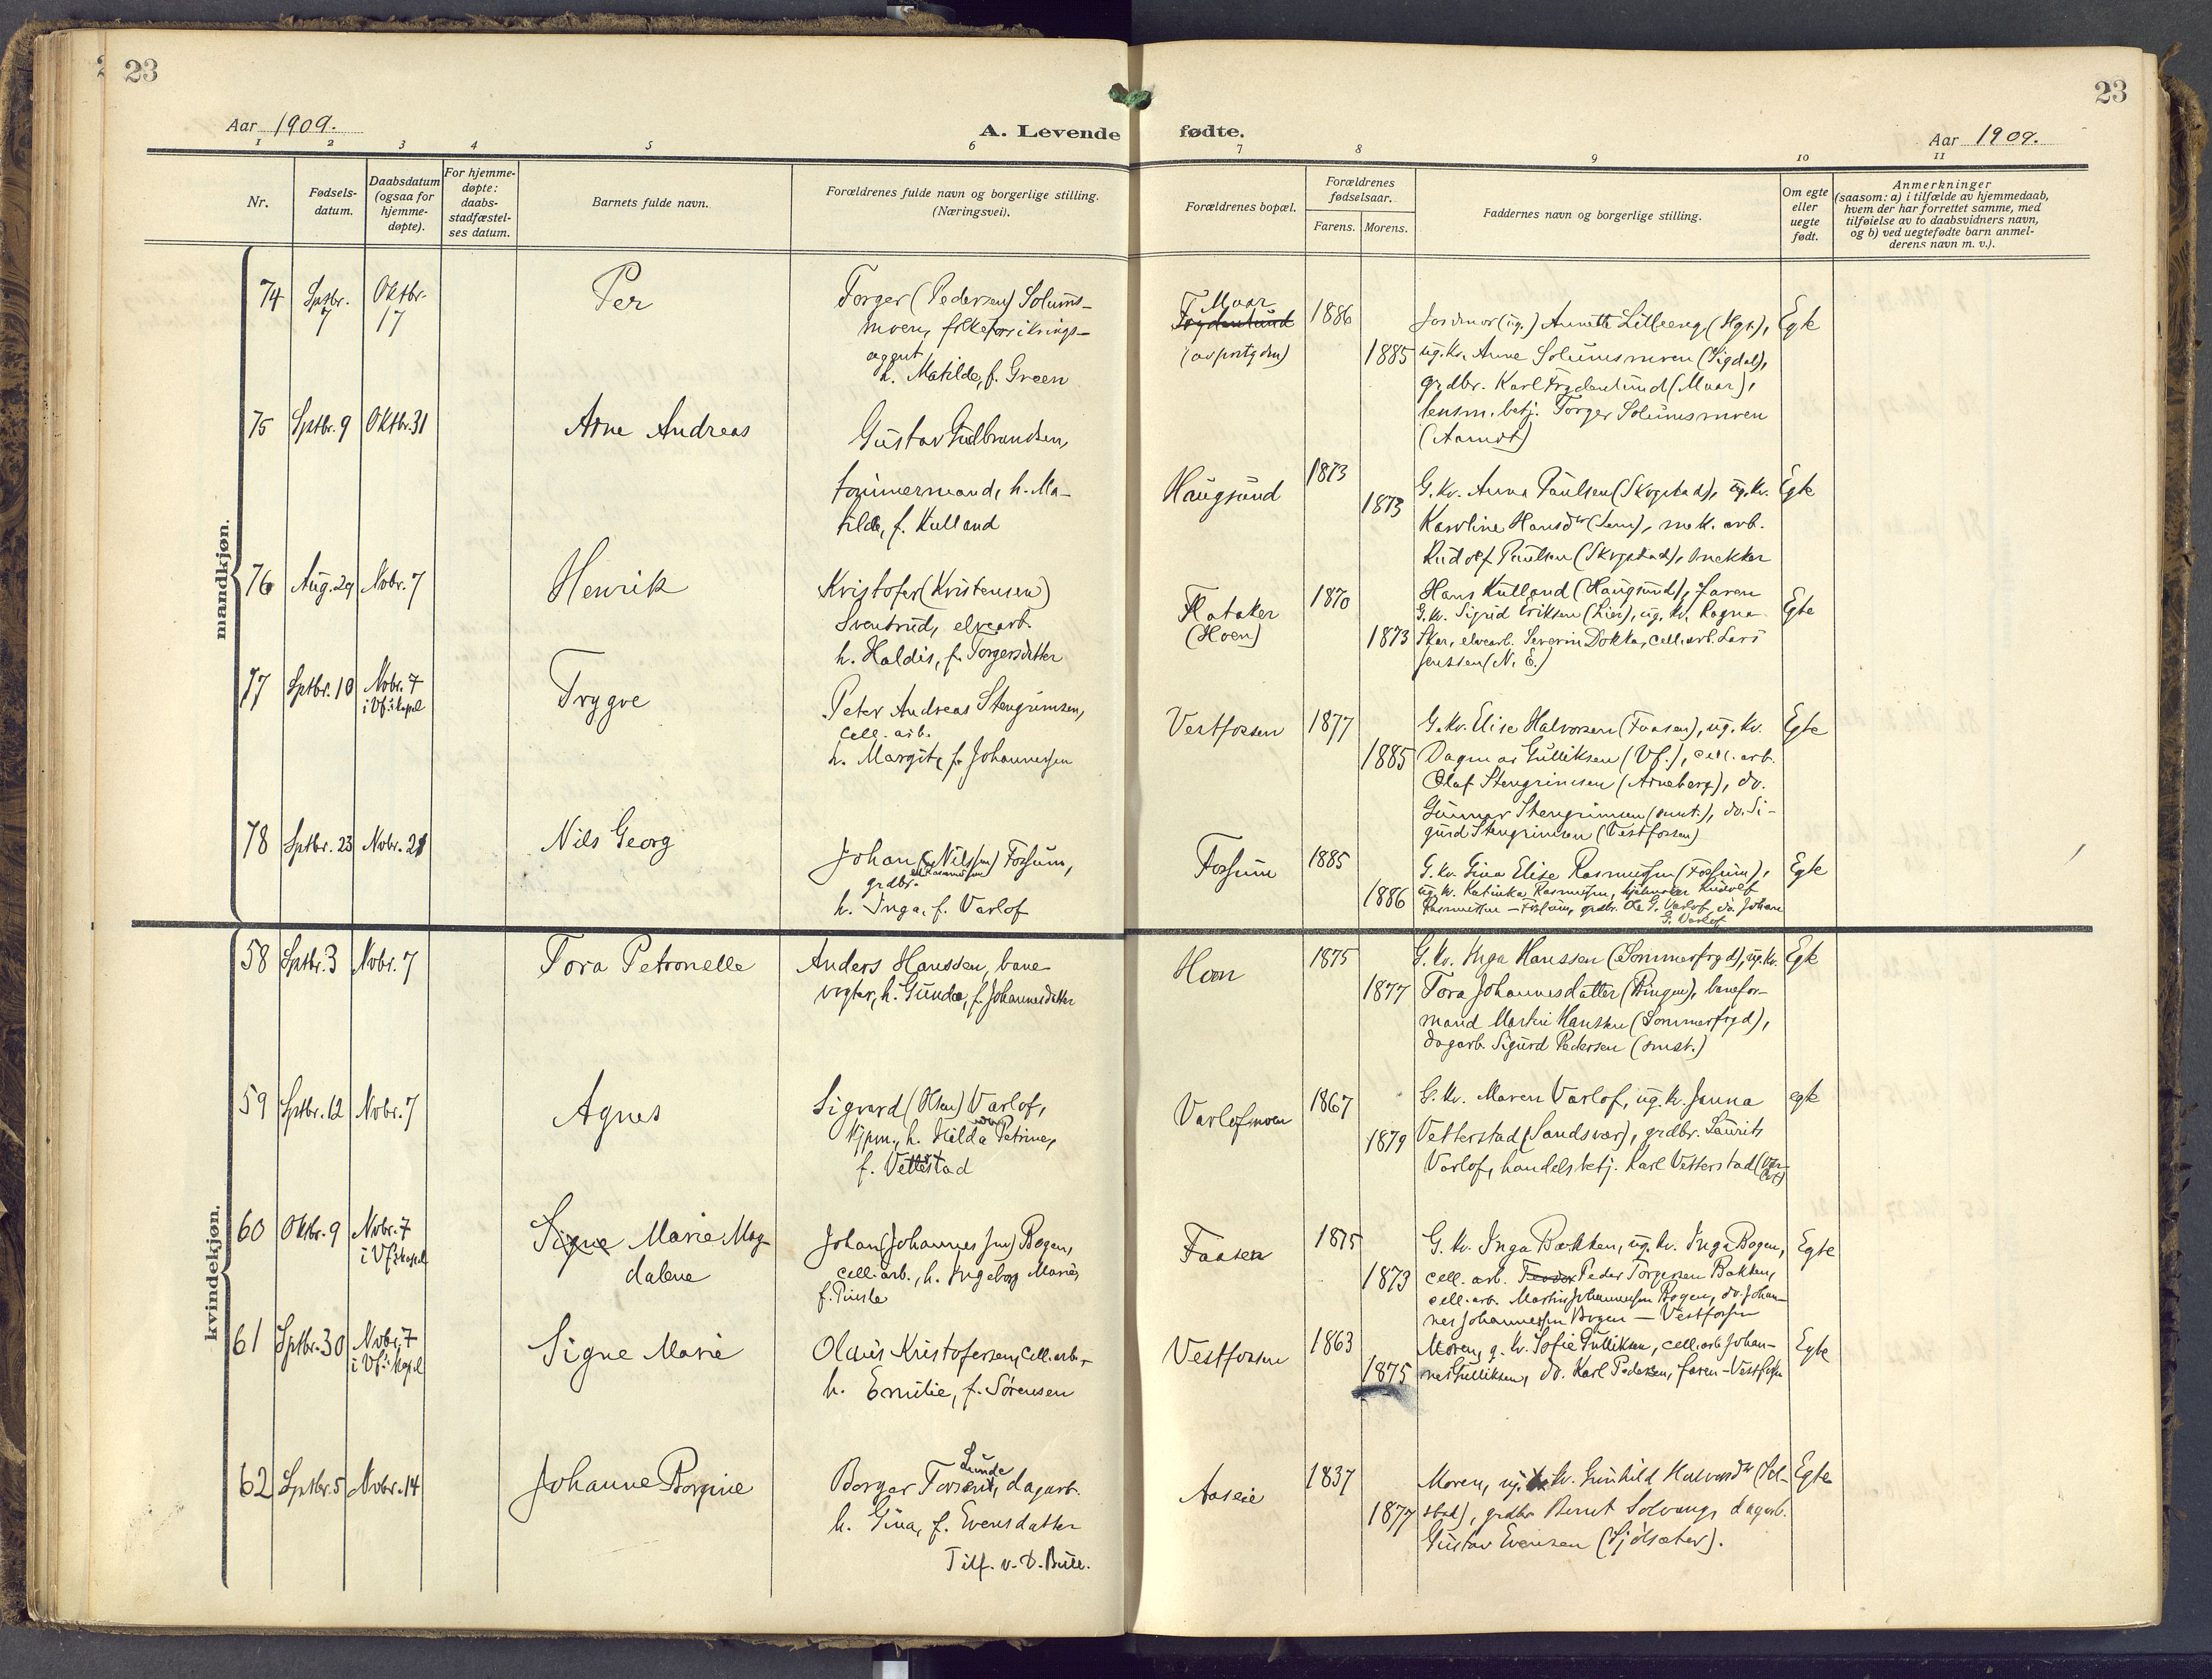 23
23
Aar 1909.
A. Levende fødte.
Aar 1909.
1 2 3 4 5 6 7 8 9 10 11
Nr.
Fødselsdatum.
Daabsdatum (ogsaa for hjemmedøpte).
For hjemmedøpte: daabsstadfæstelses datum.
Barnets fulde navn.
Forældrenes fulde navn og borgerlige stilling. (Næringsvei).
Forældrenes bopæl.
Forældrenes fødselsaar.
Farens. Morens.
Faddernes navn og borgerlige stilling.
Om egte eller uegte født.
Anmerkninger
(saasom: a) i tilfælde av hjemmedaab,
hvem der har forrettet samme, med
tilføielse av to daabsvidners navn,
og b) ved uegtefødte barn anmelderens navn m. v.).
mandkjøn.
74 Sptbr. 7 Oktbr. 17 Per
Torger (Pedersen) Solumsmoen, folkeforsikringsagent
h. Matilde, f. Green
Muar
1886 1885
Jordmor (ug.) Annette Lilleeng (Hgs.),
ug. kv. Anne Solumsmoen (Sigdal),
grdbr. Karl Frydenlund (Muar),
lensm. betj. Torger Solumsmoen
Egte
75 Sptbr. 9 Oktbr. 31 Arne Andreas
Gustav Gulbrandsen,
tømmermand, h. Matilde, f. Kulland
Haugsund
1873 1873
G. kv. Anna Paulsen (Skogstad), ug. kv.
Karoline Hansdtr (Lem), mek. arb.
Rudolf Paulsen (Skogstad), snekker
Hans Kulland (Haugsund), faren
Egte
76 Aug. 29 Novbr. 7 Henrik
Kristofer (Kristensen)
Svenbrud, elvearb.
h. Haldis, f. Torgersdatter
Flataker
(Hoen)
1870 1873
G. kv. Sigrid Eriksen (Lier), ug. kv. Ragna
Skar, elvearb. Severin Dokka, cell. arb. Lars
Jenssen (N. E.)
Egte
77 Sptbr. 10 Novbr. 7 i Vf.s kapel Trygve
Peter Andreas Stengrimsen,
cell. arb.
h. Margit, f. Johannessen
Vestfossen
1877 1885
G. kv. Elise Halvorsen (Faasen), ug. kv.
Dagmar Gulliksen (Vf.), cell. arb.
Olaf Stengrimsen (Arneberg), do.
Gunnar Stengrimsen (smst.), do. Sigurd Stengrimsen (Vestfossen)
Egte
78 Sptbr. 23 Novbr. 21 Nils Georg
Johan (Nilssen) Fossum,
grdbr.
h. Inga, f. Varlof
Fossum
1885 1886
G. kv. Gina Elise Rasmussen (Fossum),
ug. kv. Katinka Rasmussen, Rudolf
Rasmussen – Fossum, grdbr. Ole G. Varlof, do. Johan
G. Varlof
Egte
kvindekjøn.
58 Sptbr. 3 Novbr. 7 Tora Petronelle
Anders Hanssen, banevogter, h. Gunda, f. Johannesdatter
Hoen
1875 1877
G. kv. Inga Hanssen (Sommerfryd), ug. kv.
Tora Johannesdatter (Ringen), baneformand Martin Hanssen (Sommerfryd),
dagarb. Sigurd Pedersen (smst.)
Egte
59 Sptbr. 12 Novbr. 7 Agnes
Sigvard (Olsen) Varlof,
kjpm., h. Hilda Petrine,
f. Vetterstad
Varlofmoen
1867 1879
G. kv. Maren Varlof, ug. kv. Janna
Vetterstad (Sandsvær), grdbr. Laurits
Varlof, handelsbetj. Karl Vetterstad
egte
60 Oktbr. 9 Novbr. 7 i Vf.s kapel Signe Marie Magdalene
Johan (Johannessen) Bogen,
cell. arb., h. Ingeborg Marie,
Faasen
1875 1873
G. kv. Inga Bakken, ug. kv. Inga Bogen,
cell. arb. Peder Torgersen Bakken,
cell. arb. Martin Johannessen Bogen, do. Johannes Johannessen Bogen – Vestfossen
Egte
61 Sptbr. 30 Novbr. 7 i Vf.s kapel Signe Marie
Olaus Kristofersen, cell. arb.,
h. Emilie, f. Sørensen
Vestfossen
1863 1875
Moren, g. kv. Sofie Gulliksen, cell. arb. Johannes Gulliksen, do. Karl Pedersen, faren – Vestfossen
Egte
62 Sptbr. 5 Novbr. 14 Johanne Borgine
Borgar Lunde, dagarb.
h. Gina, f. Evensdatter
Tilf. v. D. Bull.
Aaseie
1837 1877
Moren, ug. kv. Gunhild Halvorsdtr
grdbr. Bernt Solvang, dagarb.
Gustav Evensen (Sjølsæter).
Egte